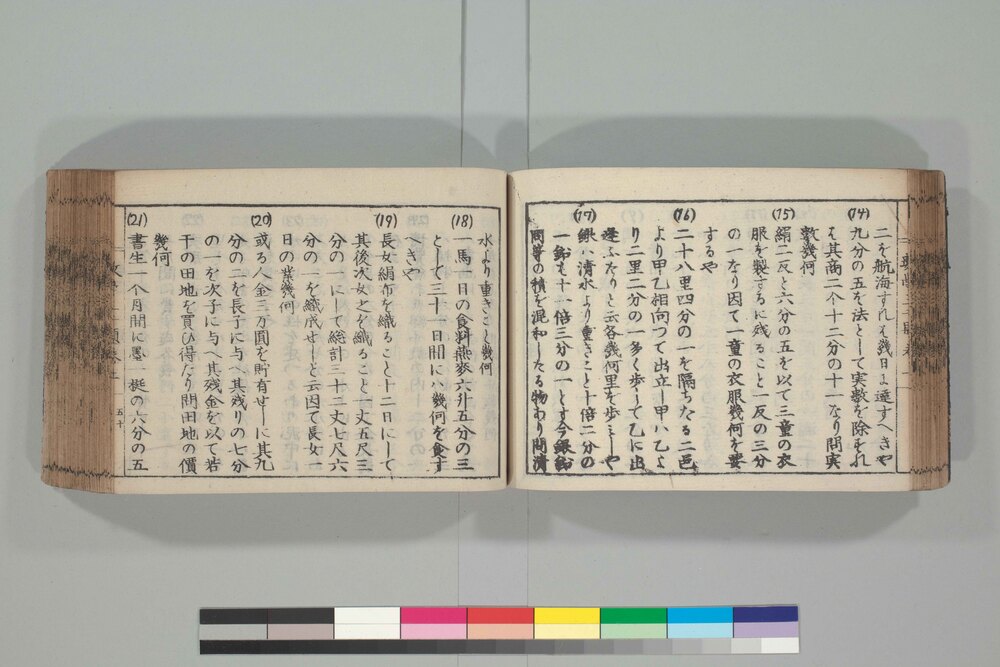 二を航海すれハ幾日に達すへきや
(14)
九分の五を法として実数を除すれ
ハ其商二个十二分の十一なり問実
数幾何
(15)
絹二反と六分の五を以て三童の衣
服を製するに残ること一反の三分
の一なり因て一童の衣服幾何を要
するや
(16)
二十八里四分の一を隔ちたる二邑
より甲乙相向つて出立し甲ハ乙よ
り二里二分の一多く歩して乙に出
逢ふたりと云各幾何里を歩ミしや
(17)
銀ハ清水より重きこと十倍二分の
一鉛も十一倍三分の一とす今銀鉛
同等の積を混和したる物あり問清
水より重きこと幾何
(18)
一馬一日の食料燕麥六升五分の三
として三十一日間にハ幾何を食す
へきや
(19)
長女絹布を織ること十二日にして
其後次女之を織ること一丈五尺三
分の一にして総計三十二丈七尺六
分の一を織成せしと云因て長女一
日の業幾何
(20)
或る人金三万圓を貯有せしに其九
分の二を長子に与へ其残りの七分
の一を次子に与へ其残金を以て若
干の田地を買ひ得たり問田地の價
幾何
(21)
書生一个月間に墨一挺の六分の五
五十